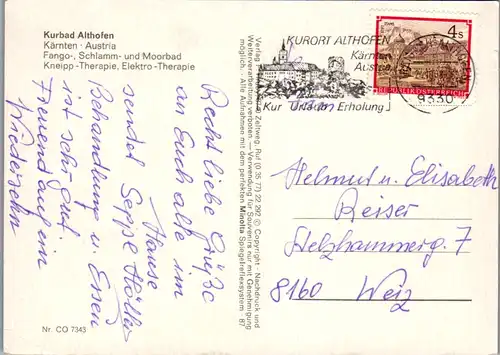 Kurbad Althofen
Kärnten · Austria
Fango-, Schlamm- und Moorbad
Kneipp-Therapie, Elektro-Therapie
Recht liebe Grüße
an Euch alle im
Hause
sendet Seppi
Behandlung u. Essen
ist sehr gut
Freuend auf ein
Wiedersehn
Nr. CO 7343
Zeltweg, Ruf (0 35 77) 22 292 © Copyright · Nachdruck und
Weiterverarbeitung verboten. — Verwendung für Souvenirs nur mit Genehmigung
möglich. · Alle Aufnahmen mit dem perfekten Minolta Spiegelreflexsystem 87
KURORT ALTHOFEN
Kärnten
Kur Urlaub Erholung
4 S
REPUBLIK ÖSTERREICH
9330
Helmut u. Elisabeth
Reiser
Stelzhammerg. 7
8160 Weiz